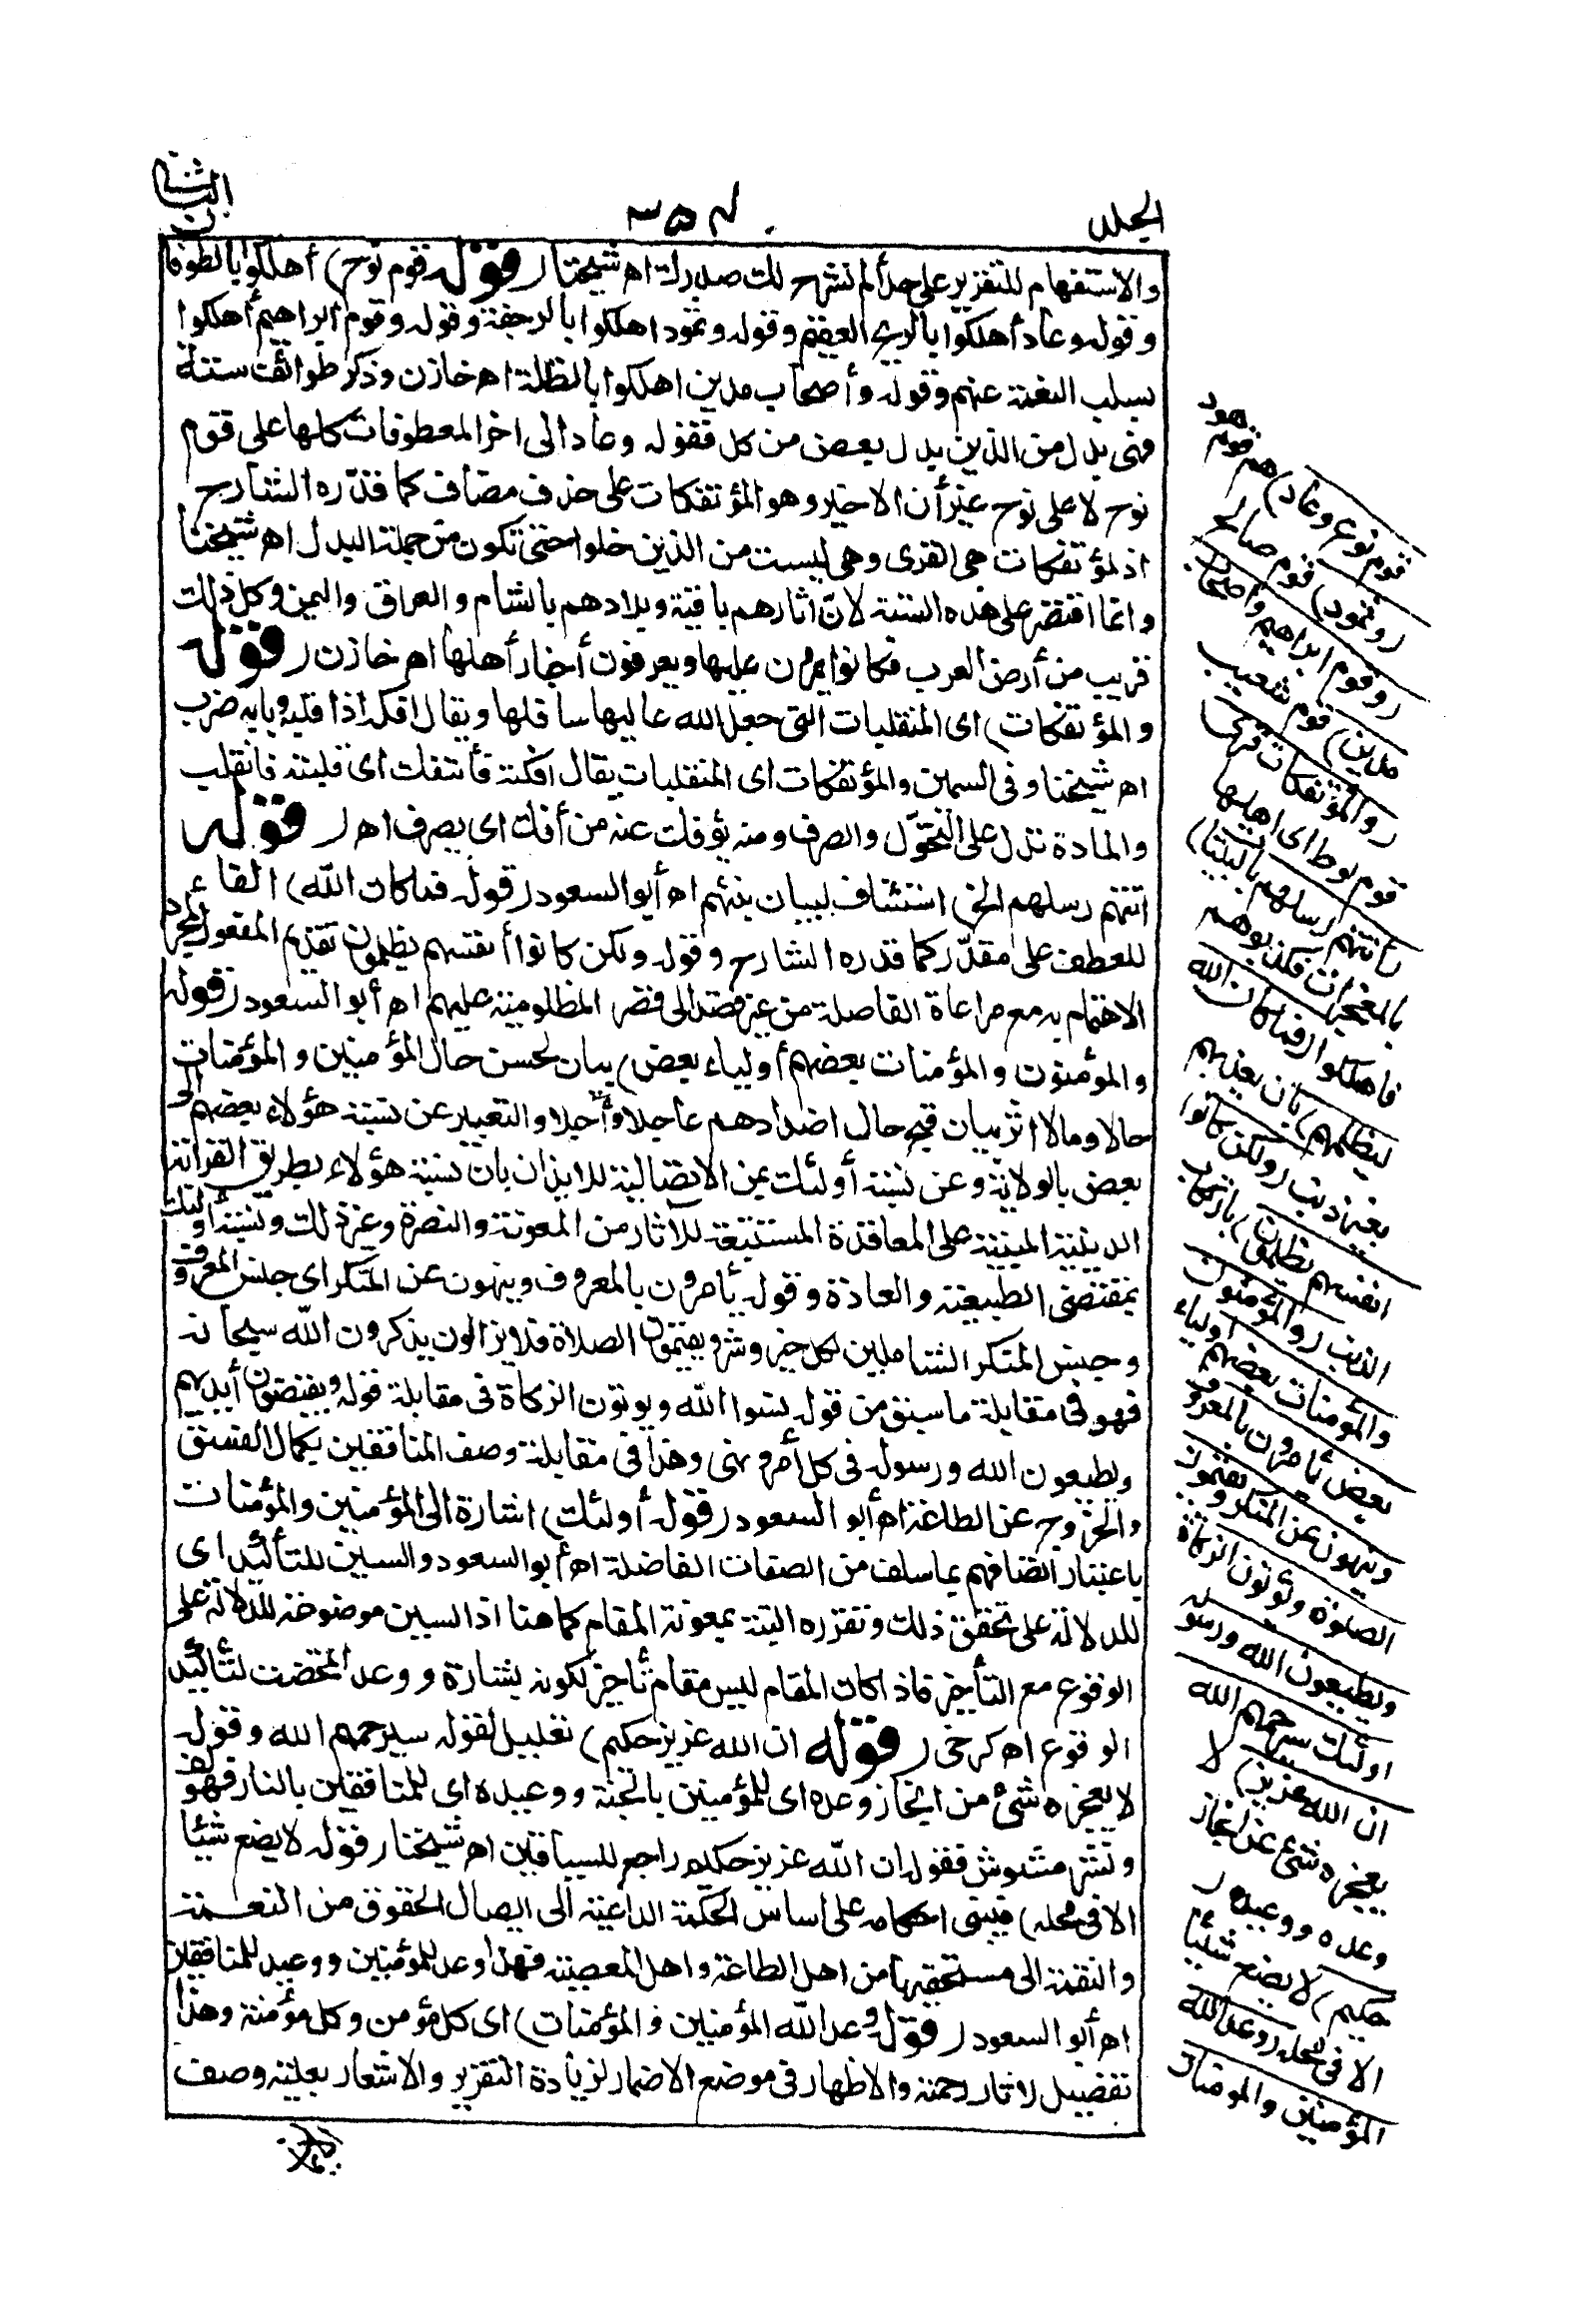 الجلد
٣٥٤
الثانى
والاستفهام للتقرير على حد ألم نشرح لك صدرك اه شيخنا (قوله قوم نوح) أهلكوا بالطوفا
وقوله وعاد أهلكوا بالريح العقيم وقوله وثمود اهلكوا بالرجفة وقوله وقوم ابراهيم أهلكوا
بسلب النعمة عنهم وقوله وأصحاب مدين اهلكوا بالظلة اه خازن وذكر طوائف ستة
فهى بدل من الذين بدل بعض من كل فقوله وعاد الى اخر المعطوفات كلها على قوم
نوح لا على نوح غير أن الاخير وهو المؤتفكات على حذف مضاف كما قدّره الشارح
اذ لمؤتفكات هى القرى وهى ليست من الذين خلوا حتى تكون من جملة البدل اه شيخنا
وانما اقتصر على هذه الستة لانّ اثارهم باقية وبلادهم بالشام والعراق واليمن وكل ذلك
قريب من أرض العرب فكانوا يمرون عليها ويعرفون أخبار أهلها اه خازن (قوله
والمؤتفكات) اى المنقلبات التى جعل الله عاليها سافلها ويقال افكه اذا قلبه وبابه ضرب
اه شيخنا وفى السمين والمؤتفكات اى المنقلبات يقال افكته فأتفك اى قلبته فانقلب
والمادة تدل على التحوّل والصرف ومنه يؤفك عنه من أفك اى يصرف اه (قوله
اتتهم رسلهم الخ) استئناف لبيان نبئهم اه أبو السعود (قوله فما كان الله) الفاء
للعطف على مقدّر كما قدره الشارح وقوله ولكن كانوا أنفسهم يظلمون تقديم المفعول لمجرد
الاهتمام به مع مراعاة الفاصلة من غير قصد الى قصر المظلومية عليهم اه أبو السعود (قوله
والمؤمنون والمؤمنات بعضهم أولياء بعض) بيان لحسن حال المؤمنين والمؤمنات
حالا ومالا اثر بيان قبح حال اضدادهم عاجلا وآجلا والتعبير عن نسبة هؤلاء بعضهم الى
بعض بالولاية وعن نسبة أولئك بمن الاتصالية للايذان بان نسبة هؤلاء بطريق القرابة
الدينية المبنية على المعاقدة المستتبعة للآثار من المعونة والنصرة وغير ذلك ونسبة أولئك
بمقتضى الطبيعة والعادة وقوله يأمرون بالمعروف وينهون عن المنكر اى جنس المعروف و
وجنس المنكر الشاملين لكل خير وشر ويقيمون الصلاة فلا يزالون يذكرون الله سبحانه
فهو فى مقابلة ما سبق من قوله نسوا الله ويوتون الزكاة فى مقابلة قوله ويقبضون أيديهم
ويطيعون الله ورسوله فى كل أمر ونهى وهذا فى مقابلة وصف المنافقين بكمال الفسق
والخروج عن الطاعة اه أبو السعود (قوله أولئك) اشارة الى المؤمنين والمؤمنات
باعتبار اتصافهم بما سلف من الصفات الفاضلة اه أبو السعود والسين للتأكيد اى
للدلالة على تحقق ذلك وتقرره البتة بمعونة المقام كما هنا اذ السين موضوعة للدلالة على
الوقوع مع التأخير فاذا كان المقام ليس مقام تأخير لكونه بشارة ووعدا تمحضت لتأكيد
الوقوع اه كرخى (قوله ان الله عزيز حكيم) تعليل لقوله سيرحمهم الله وقوله
لا يعجزه شئ من انجاز وعده اى للمؤمنين بالجنة ووعيده اى للمنافقين بالنار فهو لف
ونشر مشوش فقوله ان الله عزيز حكيم راجع للسياقين اه شيخنا (قوله لا يضع شيئا
الا فى محله) فيبنى احكامه على اساس الحكمة الداعية الى ايصال الحقوق من النعمة
والنقمة الى مستحقيها من اهل الطاعة واهل المعصية فهذا وعد للمؤمنين ووعيد للمنافقين
اه أبو السعود (قوله وعد الله المؤمنين والمؤمنات) اى كل مؤمن وكل مؤمنة وهذا
تفصيل لاثار رحمته والاظهار فى موضع الاضمار لزيادة التقرير والاشعار بعلية وصف
قوم نوح وعاد) هم قوم هود
(وثمود) قوم صالح
(وقوم ابراهيم واصحاب
مدين) قوم شعيب
(والمؤتفكات) قرى
قوم لوط اى اهلها
(أتتهم رسلهم بالبينات)
بالمعجزات فكذبوهم
فاهلكوا (فما كان الله
ليظلمهم) بان يعذبهم
بغير ذنب (ولكن كانوا
انفسهم يظلمون) بارتكاب
الذنب (والمؤمنون
والمؤمنات بعضهم اولياء
بعض يأمرون بالمعروف
وينهون عن المنكر ويقيمون
الصلوة ويؤتون الزكاة
ويطيعون الله ورسوله
اولئك سيرحمهم الله
ان الله عزيز) لا
يعجزه شئ عن انجاز
وعده ووعيده (
حكيم) لا يضع شيئا
الا فى محله (وعد الله
المؤمنين والمومنات